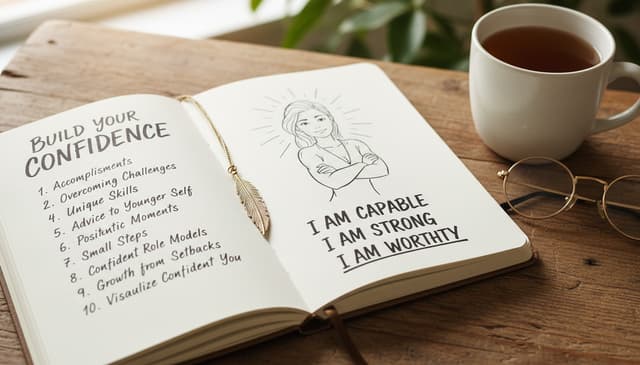 BUILD YOUR
CONFIDENCE
1. Accomplisments
2. Overcoming Challenges
4. Unique Skills
5. Advice to Younger Self
6. Positntic Moments
7. Small Steps
8. Confident Role Models
9. Growth from Setbacks
10. Visaulize Confident You
I AM CAPABLE
I AM STRONG
I AM WORTHTY